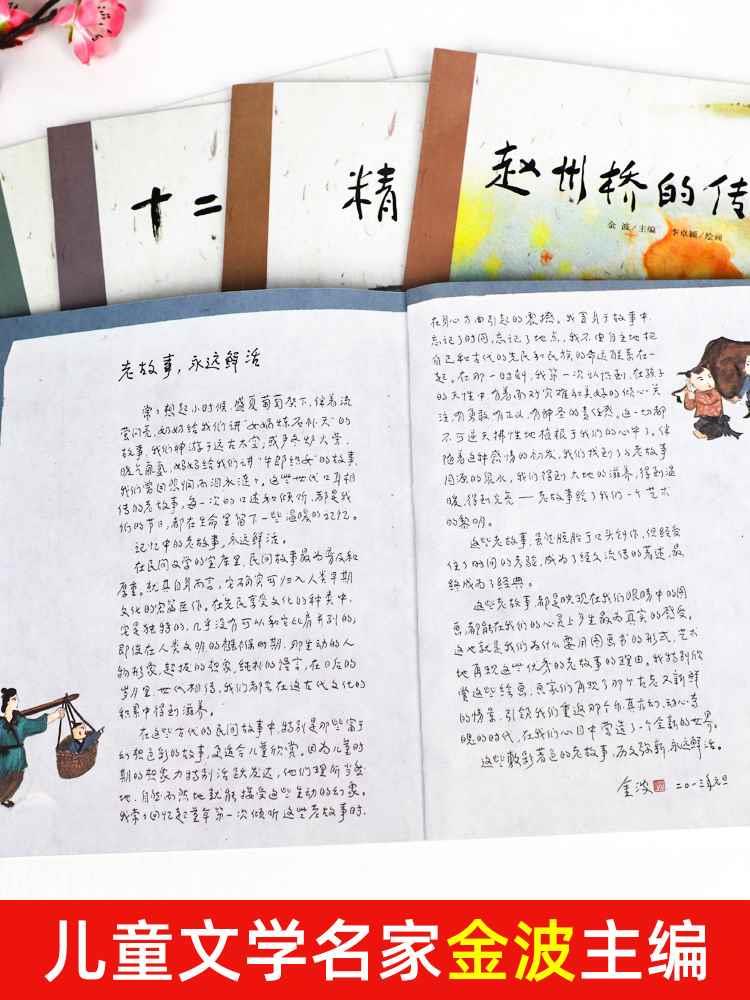 十二
精
赵州桥的传
金波/主编 李卓颖/绘画
老故事,永远鲜活
常々想起小时候,盛夏葡萄架下,伴着流
萤闪光,奶奶给我们讲“女娲炼石补天”的
故事,我们神游于远古太空;或严冬炉火旁,
暖气氤氲,奶奶给我们讲“牛郎织女”的故事,
我们常因悲悯而泪水涟々。这些世代口耳相
传的老故事,每一次的口述和倾听,都是我
们的节日,都在生命里留下一些温暖的记忆。
记忆中的老故事,永远鲜活。
在民间文学的宝库里,民间故事最为普及和
厚重。就其自身而言,它确实可归入人类早期
文化的宏篇巨作。在先民享受文化的种类中,
它是独特的,几乎没有可以和它比肩并列的;
即使在人类文明的雏形时期,那生动的人
物形象,超拔的想象,纯朴的语言,在日后的
岁月里世代相传,我们都在这古代文化的
积累中得到滋养。
在这些古代的民间故事中,特别是那些富于
幻想色彩的故事,更适合儿童欣赏。因为儿童时
期的想象力特别活跃发达,他们理所当然
地、自然而然地就能接受这些生动的幻象。
我常々回忆起童年第一次倾听这些老故事时,
在身心方面引起的震撼。我置身于故事中,
忘记了时间,忘记了地点,我不由自主地把
自己和古代的先民和民族的命运联系在一
起。在那一时刻,我第一次认识到,在孩子
的天性中有着面对灾难和美好的倾心关
注,有勇敢、有正义、有神圣的责任感。这一切都
不可遏天拂性地植根于我们的心中了。伴
随着这种感情的初发,我们找到了老故事
间流的泉水,我们得到大地的滋养,得到温
暖,得到光亮——老故事给了我们一个艺术
的黎明。
这些老故事,虽说脱胎于口头创作,但经受
住了时间的考验,成为了经久流传的著述,最
终成为了经典。
这些老故事,都是映现在我们眼睛中的图
画,都能在我们的心灵上产生最为真实的感受。
这也就是我们为什么要用图画书的形式,艺术
地再现这些优秀的老故事的理由。我特别欣
赏这些绘画,画家们再现了那个古老又新鲜
的情景,引领我们重返那个乐真方初、动心夺
魄的时代,在我们心目中营造了一个全新的世界。
这些敷彩着色的老故事,历久弥新,永远鲜活。
金波 二〇一三年元旦
儿童文学名家金波主编